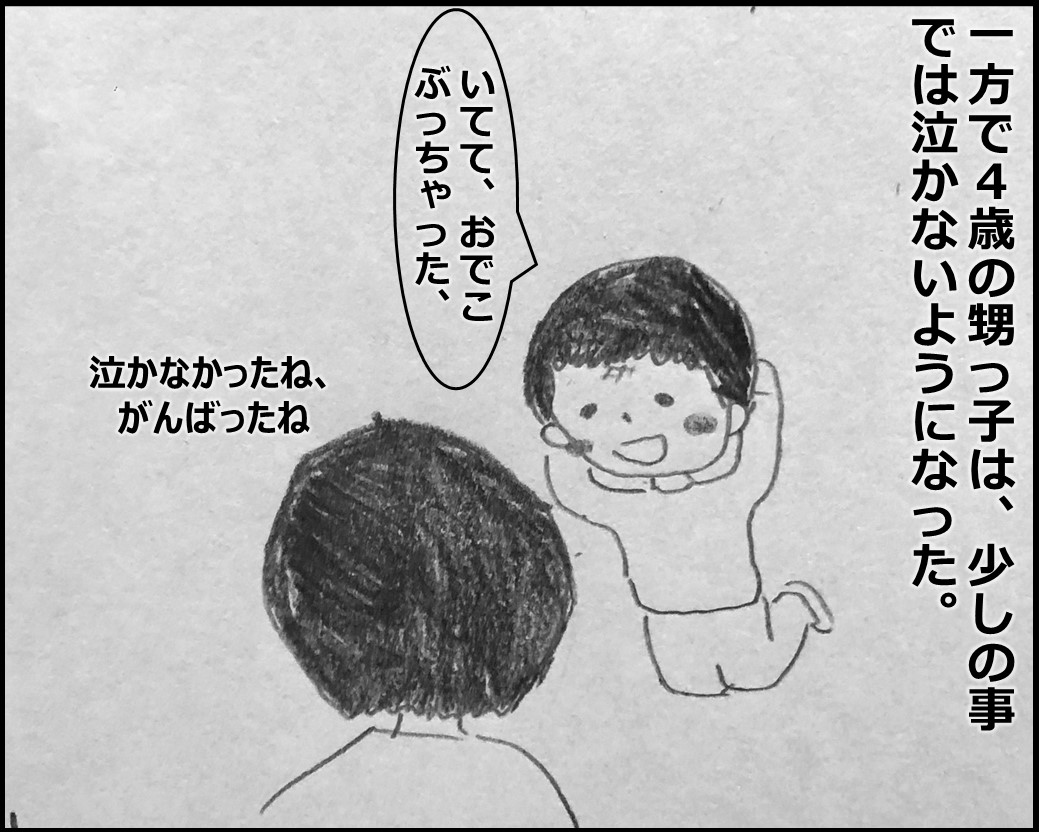 一方で４歳の甥っ子は、少しの事
では泣かないようになった。
いてて、おでこ
ぶっちゃった、
泣かなかったね、
がんばったね